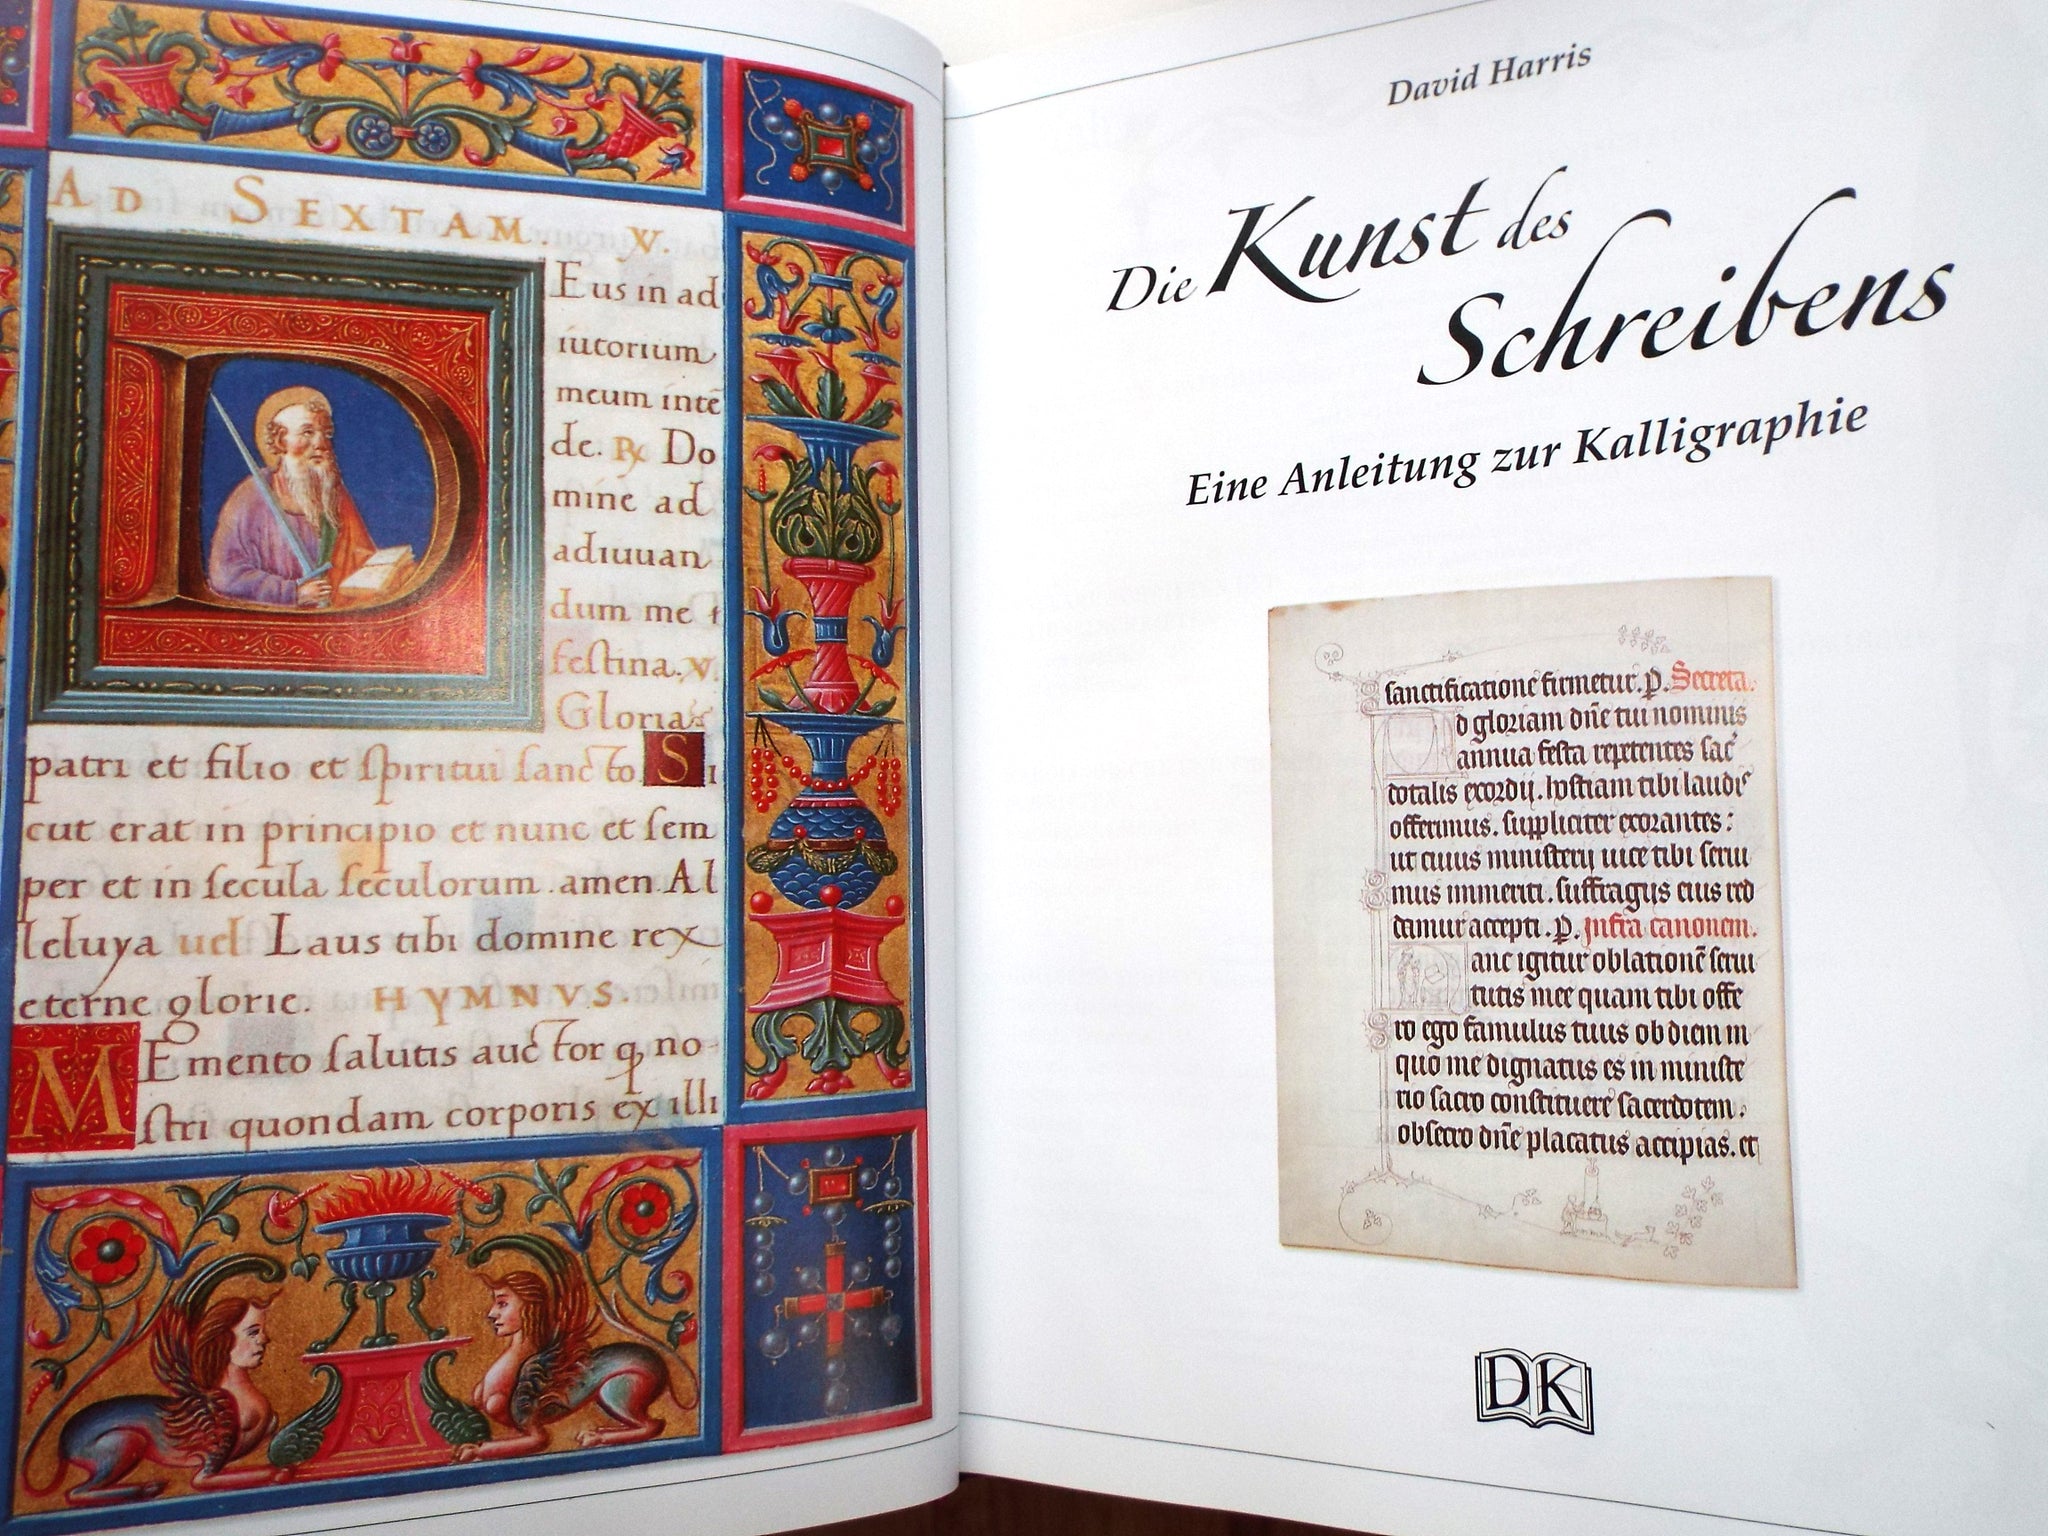 AD SEXTAM. V.
D Eus in ad
iutorium
meum intē
de. ℟ Do
mine ad
adiuuan
dum me
feſtina. V.
Gloria
patri et filio et ſpiritui ſancto. Si
cut erat in principio et nunc et ſem
per et in ſecula ſeculorum. amen. Al
leluya uel Laus tibi domine rex
eterne glorie. HYMNVS.
MEmento ſalutis auctor q no-
ſtri quondam corporis ex illi
David Harris
Die Kunst des
Schreibens
Eine Anleitung zur Kalligraphie
ſanctificatione firmetur. p. Secreta.
d gloriam dn̄e tui nominis
annua feſta repetentes ſac
dotalis exordii. hoſtiam tibi laudis
offerimus. ſuppliciter exorantes:
ut cuius miniſterii uice tibi ſerui
mus immeriti. ſuffragiis eius red
damur accepti. p. infra canonem.
anc igitur oblationē ſerui
tutis mee quam tibi offe
ro ego famulus tuus ob diem in
quo me dignatus es in miniſte
rio ſacro conſtituere ſacerdotem.
obſecro dn̄e placatus accipias. et
DK